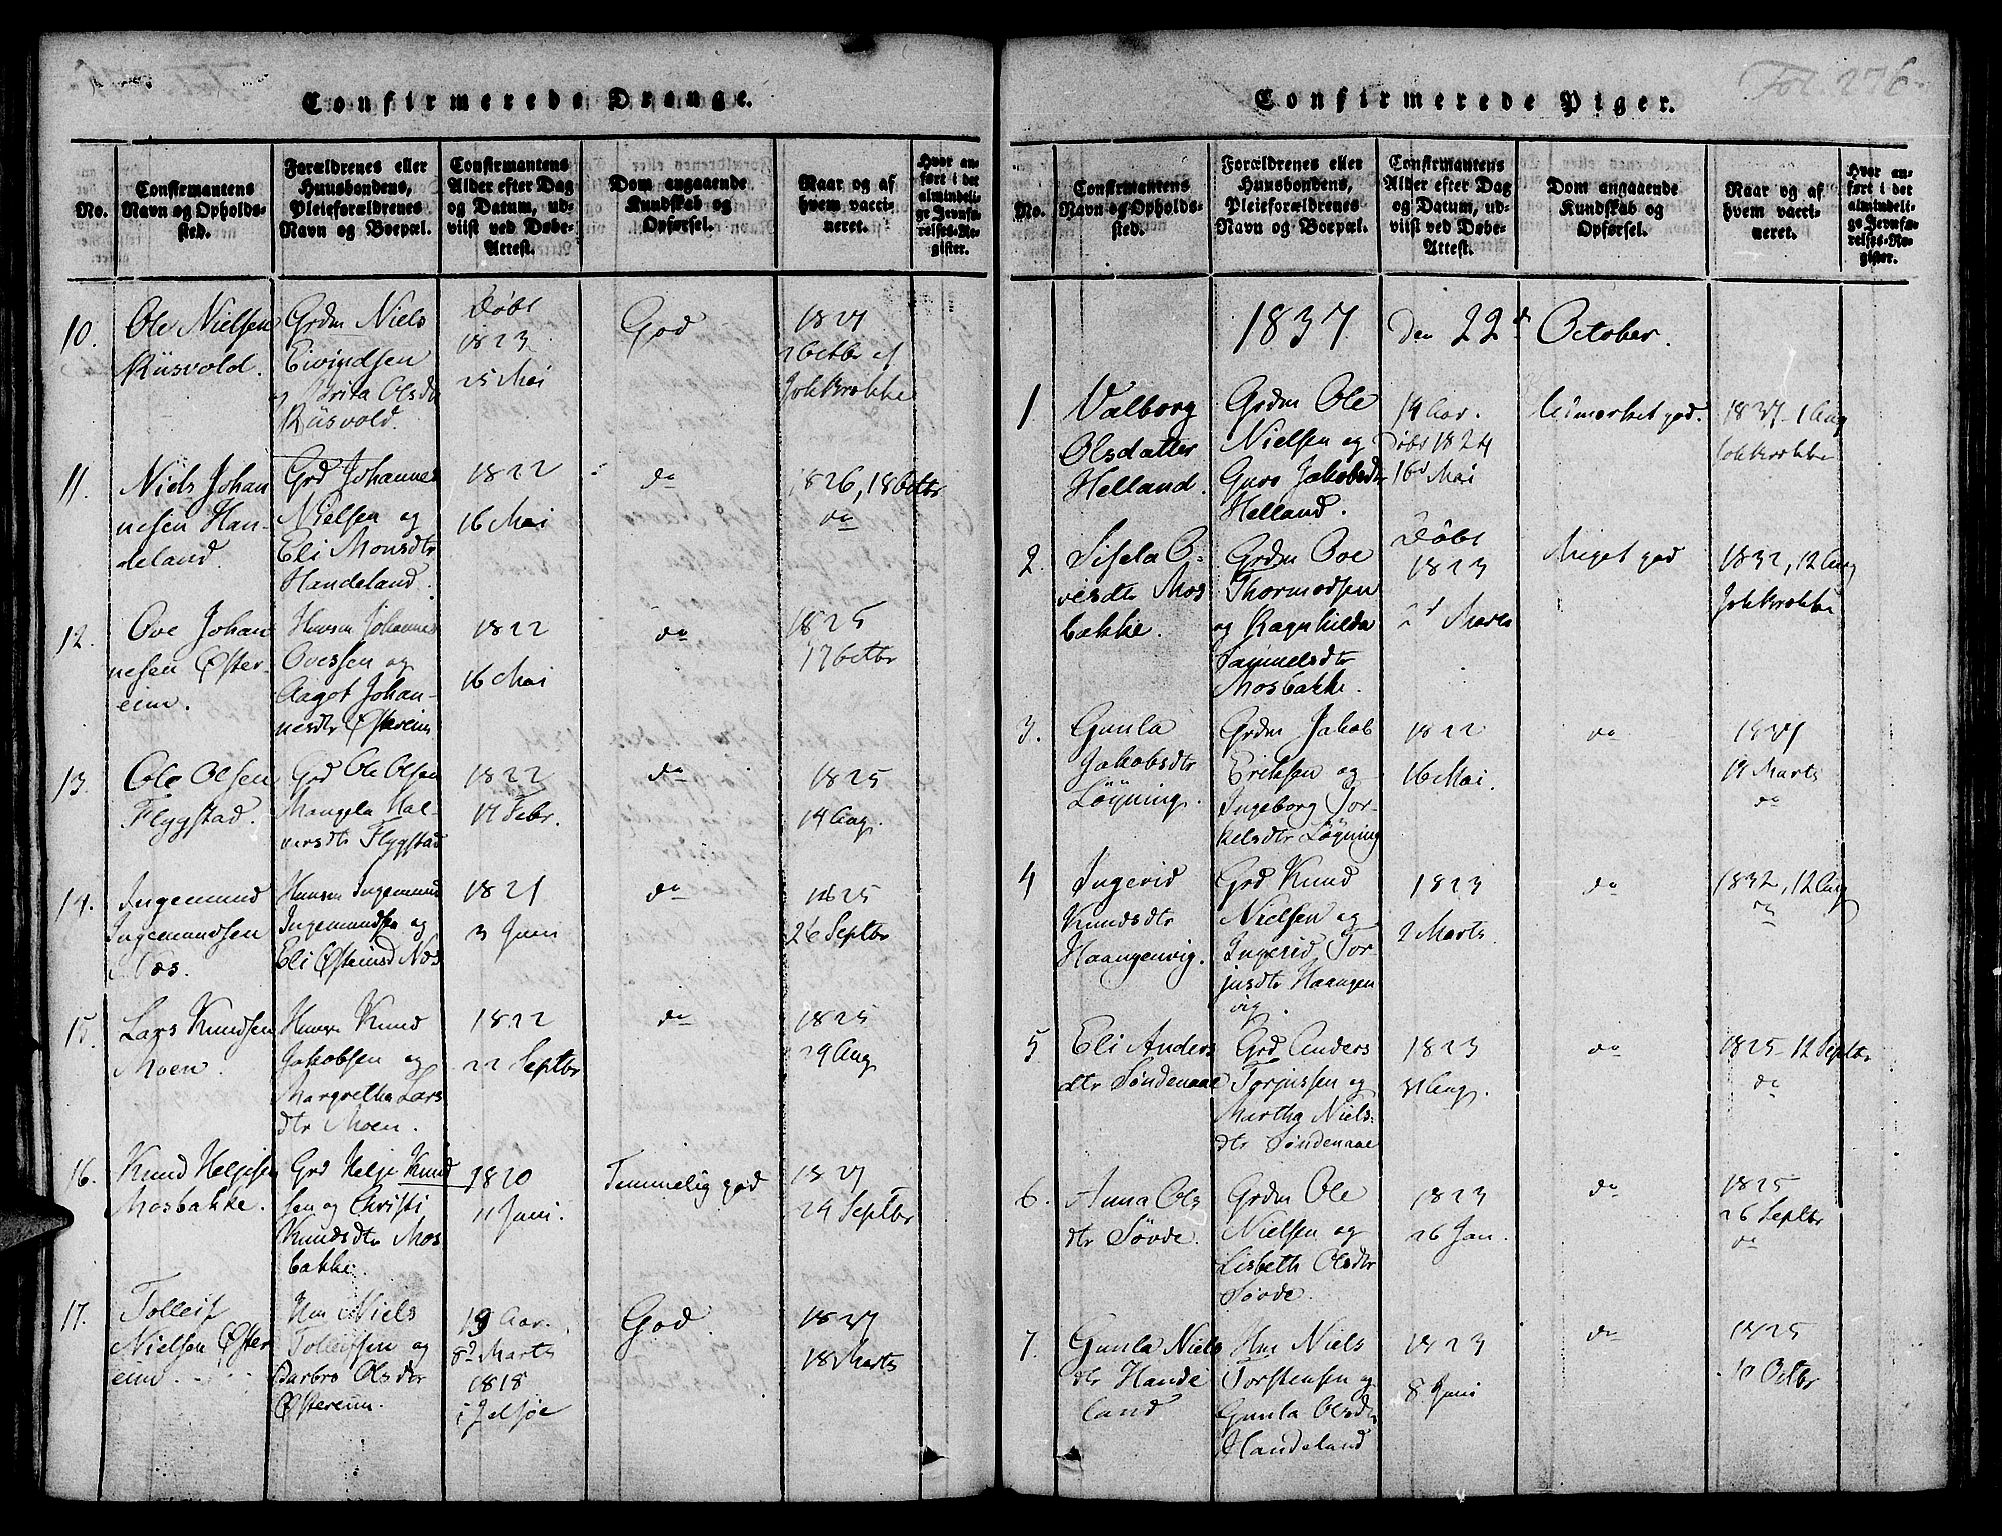 Confirmerede Drenge.
No.
Confirmantens
Navn og Opholds-
sted.
Forældrenes eller
Huusbondens,
Pleieforældrenes
Navn og Boepæl.
Confirmantens
Alder efter Dag
og Datum, ud-
viist ved Døbe-
Attest.
Dom angaaende
Kundskab og
Opførsel.
Naar og af
hvem vacci-
neret.
Hvor an-
ført i det
almindeli-
ge Jevnfø-
relses-Re-
gister.
10.
Ole Nielsen
Riisvold.
Grdm Niels
Eivindsen
og Brita Olsdtr
Riisvold.
Døbt
1823
25 Mai
God
1827
Joh Brokke
11.
Niels Johan
nesen Han-
deland.
Grd Johannes
Nielsen og
Eli Monsdtr
Handeland.
1822
16 Mai
do
1826, 18 Octbr
do
12.
Ove Johan
nesen Øster-
eim.
Huusm Johannes
Ovessen og
Aagot Johan-
nesdtr Østereim
1822
16 Mai
do
1825
17 Octbr
13.
Ole Olsen
Flygstad.
Grd Ole Olsen
Mangela Hal-
versdtr Flygstad
1822
17 Febr.
do
1825
14 Aug.
14.
Ingemund
Ingemundsen
Næs.
Huusm Ingemund
Ingemundsen og
Eli Østeinsd Næs
1821
3 Juni
do
1825
26 Septbr
15.
Lars Knudsen
Moen.
Huusm Knud
Jakobsen og
Margretha Lars
dtr Moen.
1822
22 Septbr
do
1825
29 Aug
16.
Knud Heljesen
Mosbakke.
Grd Helje Knud
sen og Christi
Knudsdtr Mos
bakke.
1820
11 Juni.
Temmelig god
1827
24 Septbr
17.
Tolleif
Nielsen Øster
eim.
Hm Niels
Tolleifsen og
Barbro Olsdtr
Østereim.
19 Aar.
8d Marts
1818
i Jelsøe
God.
1837
18 Marts
Confirmerede Piger.
Fol. 276.
No.
Confirmantens
Navn og Opholds-
sted.
Forældrenes eller
Huusbondens,
Pleieforældrenes
Navn og Boepæl.
Confirmantens
Alder efter Dag
og Datum, ud-
viist ved Døbe-
Attest.
Dom angaaende
Kundskab og
Opførsel.
Naar og af
hvem vacci-
neret.
Hvor an-
ført i det
almindeli-
ge Jevnfø-
relses-Re-
gister.
1837. Den 22d October.
1
Valborg
Olsdatter
Helland.
Grdm Ole
Nielsen og
Guro Jakobsdtr
Helland.
14 Aar.
Døbt 1824
16d Mai
Udmærket god.
1837 1 Aug
Joh Brokke
2.
Sisela O-
vesdtr Mos
bakke.
Grdm Ove
Thormodsen
og Ragnhilda
Samuelsdtr
Mosbakke.
Døbt
1823
2d Marts
Meget god
1832, 12 Aug
Joh Brokke
3.
Gunla
Jakobsdtr
Løyning.
Grdm Jakob
Eriksen og
Ingeborg Tor-
kelsdtr Løyning
1822
16 Mai.
do
19 Marts
do
4
Ingerid
Knudsdtr
Haangenvig.
Grd Knud
Nielsen og
Ingerid Tor-
jusdtr Haangen
vig.
1823
2 Marts.
do
1832, 12 Aug
do
5
Eli Anders
dtr Søndenaae
Grd Anders
Torjussen og
Martha Niels-
dtr Søndenaae
1823
31 Aug.
do
1825 12 Septbr
do
6.
Anna Ols
dtr Søvde.
Grdm Ole
Nielsen og
Lisbeth Olsdtr
Søvde.
1823
26 Jan.
do
1825
26 Septbr
do
7.
Gunla Niels
dtr Hande
land
Hm Niels
Torstensen og
Gunla Olsdtr
Handeland
1823
8 Juni
do
1825
10 Octbr